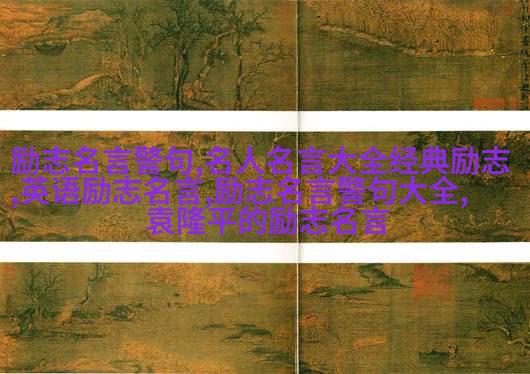 励志名言警句,名人名言大全经典励志
,英语励志名言,励志名言警句大全,
袁隆平的励志名言